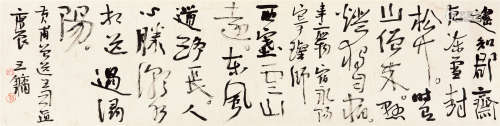 遥知郡斋
夜冻雪封
松竹时有
山僧来悬
灯独自宿
宿永阳
寄璨师
西塞云山
远东风
道路长人
心胜潮水
相送过浔
阳
皇甫曾送王司直
庚辰王镛